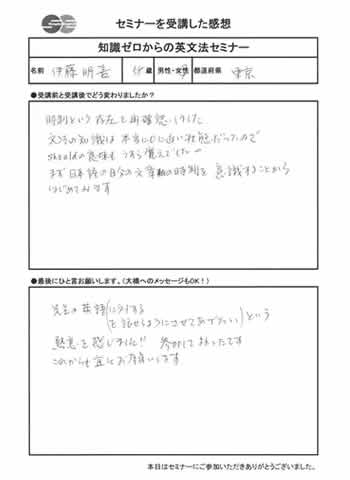 セミナーを受講した感想
知識ゼロからの英文法セミナー
名前 伊藤明 歳 男性・女性 都道府県 東京
●受講前と受講後でどう変わりましたか?
時制という存在を再確認しました
文法の知識は本当に0に近い状態だったので
shouldの意味も 覚えて
まず日本語の自分の文章の時制を意識することから
はじめてみます
●最後にひと言お願いします。(大橋へのメッセージもOK!)
先生の英語(に対する
を話せるようにさせてあげたい)という
熱意を感じました!! 参加してよかったです
これからも宜しくお願いします
本日はセミナーにご参加いただきありがとうございました。